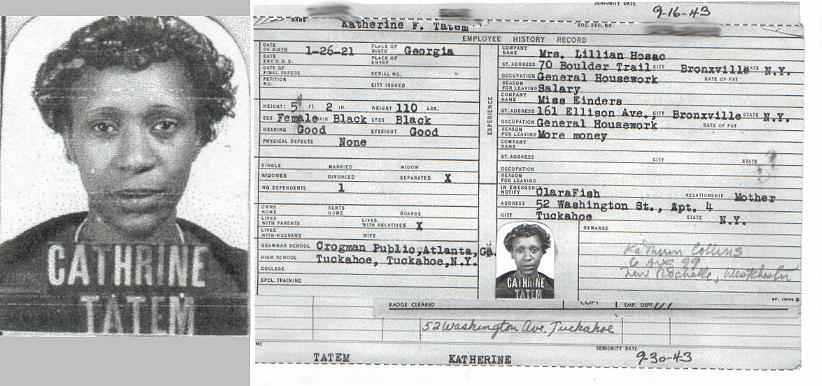 CATHRINE
TATEM
SENIORITY DATE
9-16-43
NAME
Katherine F. Tatem
SOC. SEC. NO.
EMPLOYEE HISTORY RECORD
DATE OF BIRTH 1-26-21 PLACE OF BIRTH Georgia
DATE ENT'D U.S. PLACE OF ENTRY
DATE OF FINAL PAPERS SERIAL NO.
PETITION NO. CITY ISSUED
HEIGHT: 5 FT. 2 IN. WEIGHT 110 LBS.
SEX Female HAIR Black EYES Black
HEARING Good EYESIGHT Good
PHYSICAL DEFECTS None
SINGLE MARRIED WIDOW
WIDOWER DIVORCED SEPARATED X
NO. DEPENDENTS 1
OWNS HOME RENTS HOME BOARDS
LIVES WITH PARENTS LIVES WITH RELATIVES X
LIVES WITH-HUSBAND WIFE
GRAMMAR SCHOOL Crogman Public, Atlanta, Ga.
HIGH SCHOOL Tuckahoe, Tuckahoe, N.Y.
COLLEGE
SPCL. TRAINING
EXPERIENCE
COMPANY NAME Mrs. Lillian Hosac
ST. ADDRESS 70 Boulder Trail CITY Bronxville STATE N.Y.
OCCUPATION General Housework RATE OF PAY
REASON FOR LEAVING Salary
COMPANY NAME Miss Einders
ST. ADDRESS 161 Ellison Ave., CITY Bronxville STATE N.Y.
OCCUPATION General Housework RATE OF PAY
REASON FOR LEAVING More money
COMPANY NAME
ST. ADDRESS CITY STATE
OCCUPATION
REASON FOR LEAVING
IN EMERGENCY NOTIFY ClaraFish RELATIONSHIP Mother
ADDRESS 52 Washington St., Apt. 4
CITY Tuckahoe STATE N.Y.
CATHRINE
TATEM
REMARKS
Kathryn Collins
6 Aug 99
New Rochelle, Westchester
BADGE CLEARED COPY EMP. DEPT.
52 Washington Ave. Tuckahoe
TATEM KATHERINE
SENIORITY DATE
9-30-43